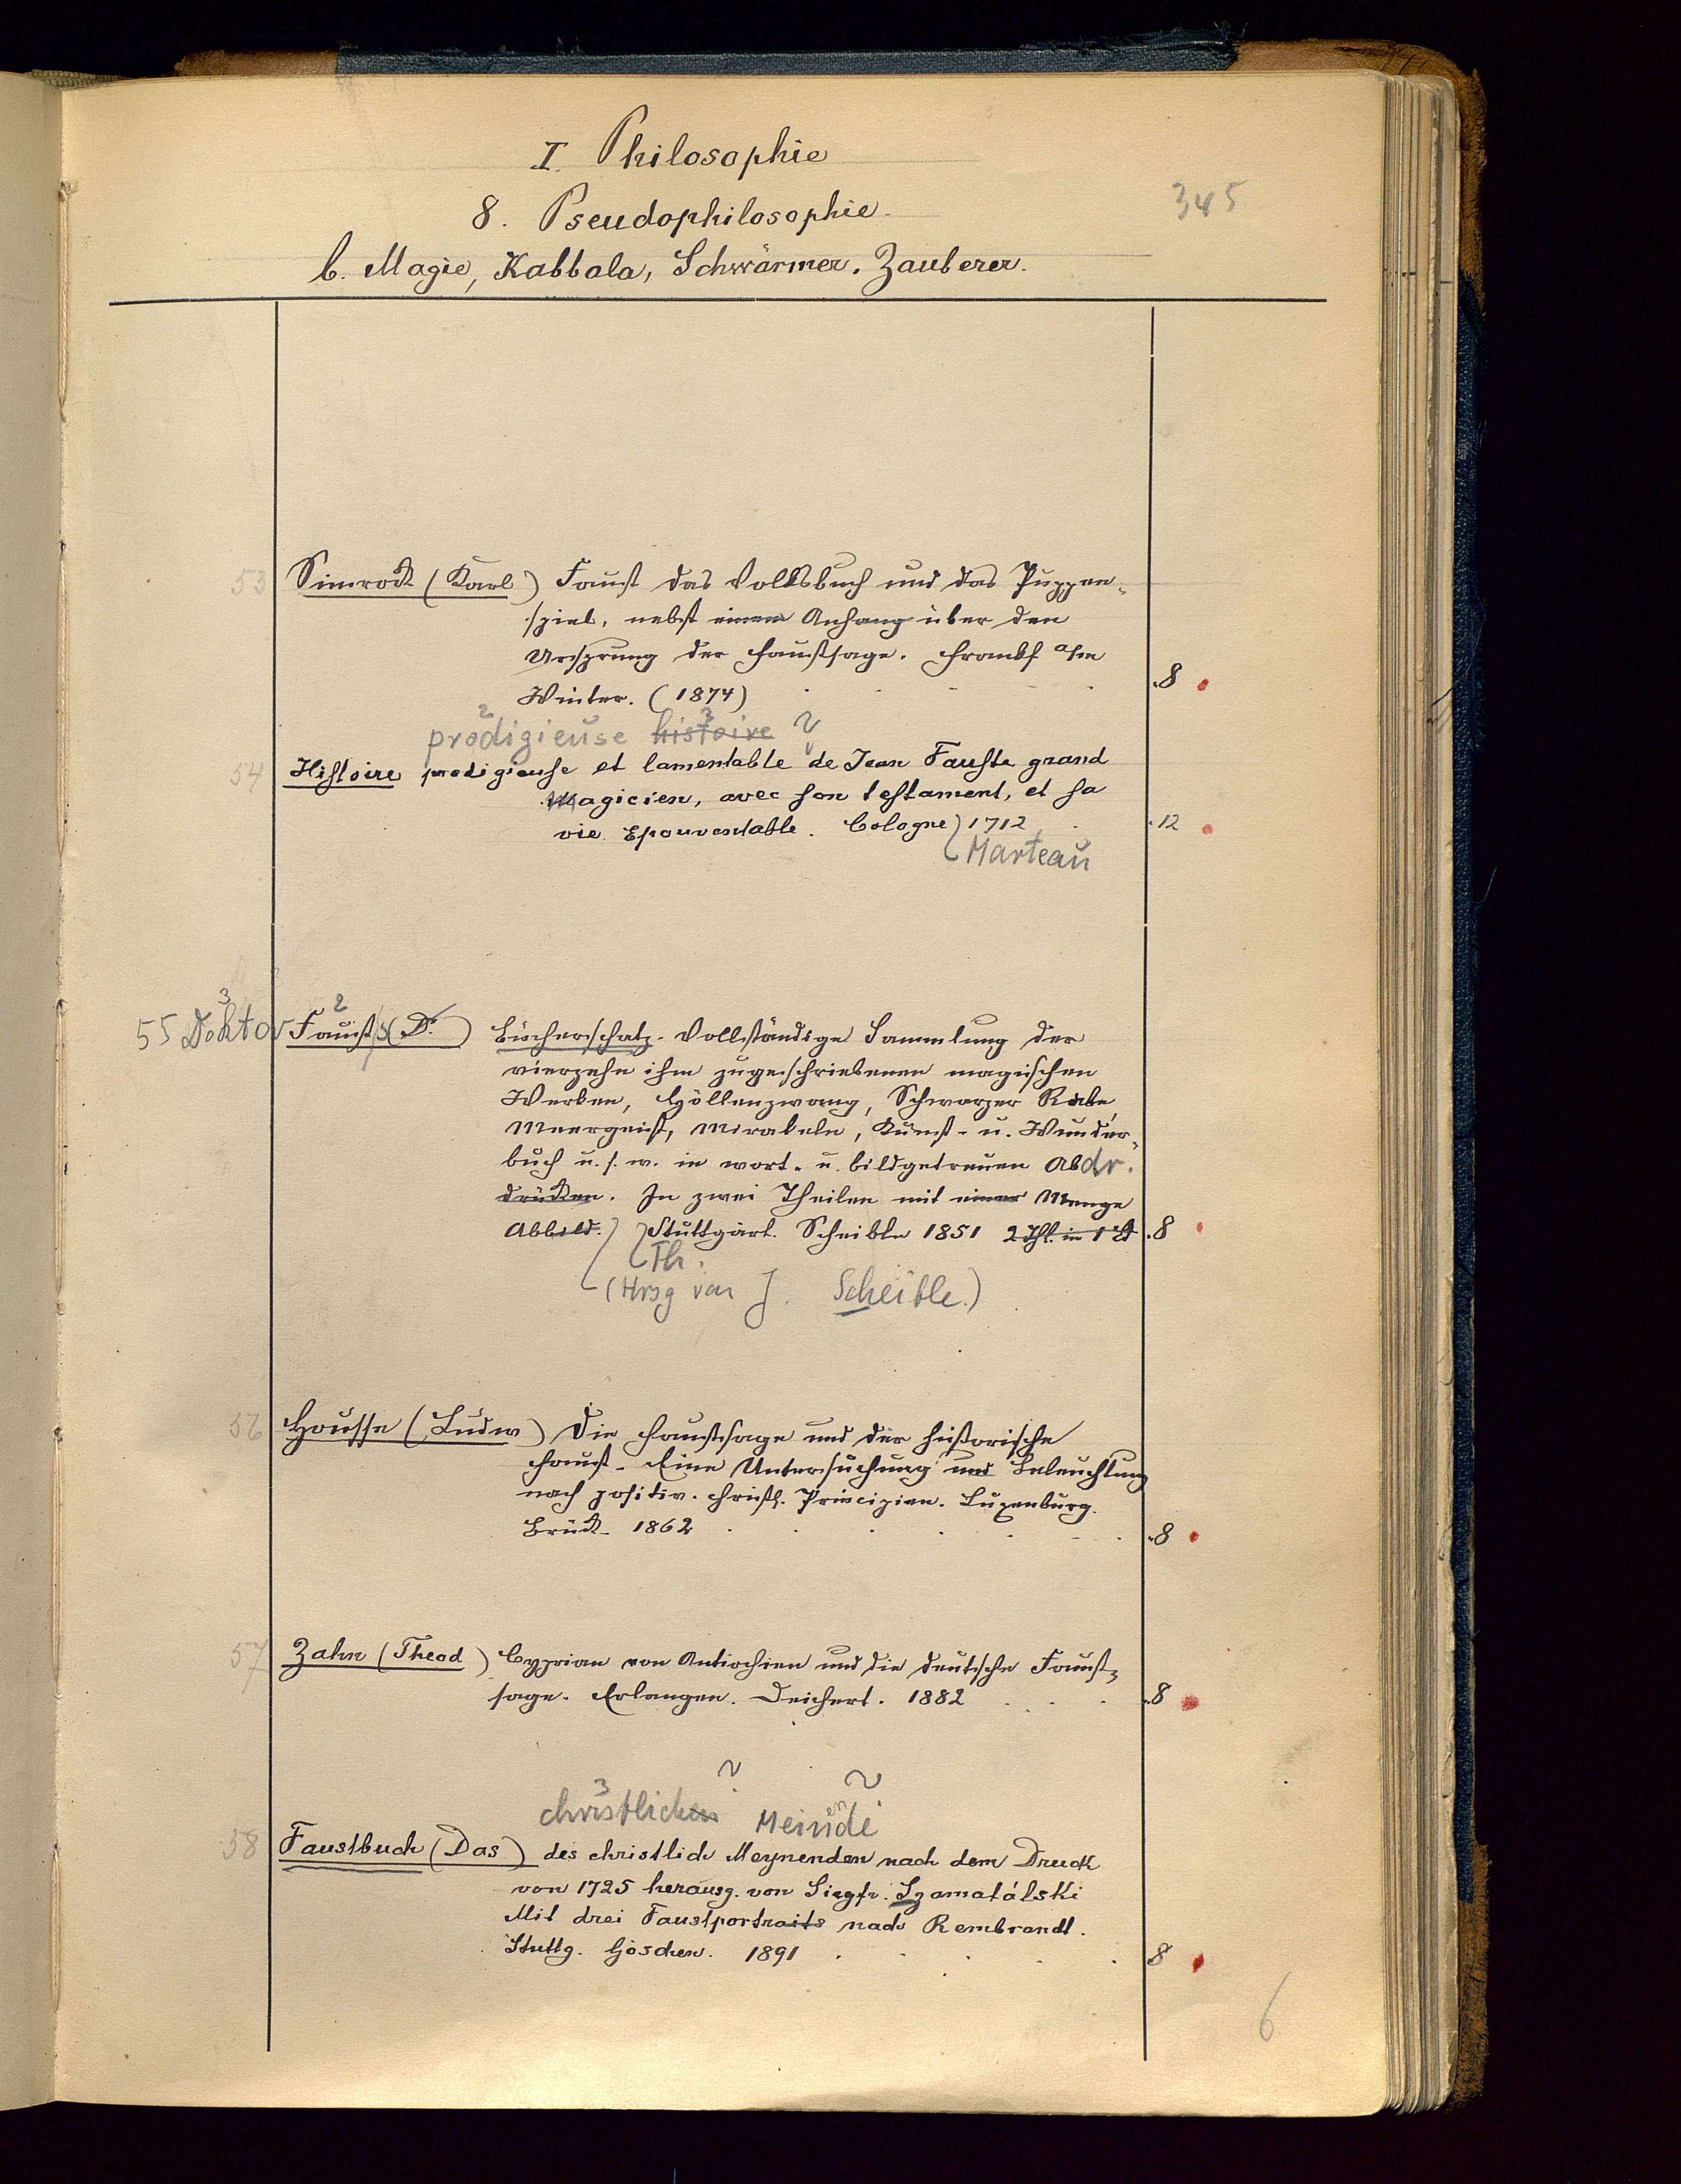 I. Philosophie
345
8. Pseudophilosophie.
b. Magie, Kabbala, Schwärmer, Zauberer.
53 Simrock (Karl) Faust das Volksbuch und das Puppen-
spiel, nebst einem Anhang über den
Ursprung der Faustsage. Frankf a/m
Winter. (1874) . . . . 8
2 3
prodigieuse histoire
54 Histoire prodigieuse et lamentable de Jean Fauste grand
Magicien, avec son testament, et sa
vie Epouventable. Cologne 1712 . 12
Marteau
3 2
55 Doktor Faust's (Dr.) Bücherschatz. Vollständige Sammlung der
vierzehn ihm zugeschriebenen magischen
Werken, Höllenzwang, Schwarzer Rabe,
Meergeist, Mirakeln, Kunst- u. Wunder-
buch u. s. w. in wort- u. bildgetreuen Abdr.
drücken. In zwei Theilen mit einer Menge
Abbild. Stuttgart. Scheible 1851 2 Thl. in 1 Bd . 8
Th.
(Hrsg von J. Scheible.)
56 Housse (Ludw) Die Faustsage und der historische
Faust. Eine Untersuchung und Beleuchtung
nach positiv. christl. Principien. Luxenburg.
Brück. 1862 . . . . . . 8
57 Zahn (Theod) Cyprian von Antiochien und die deutsche Faust-
sage. Erlangen. Deichert. 1882 . . . 8
3
christlichen Meinende
58 Faustbuch (Das) des christlich Meynenden nach dem Druck
von 1725 herausg. von Siegfr. Szamatólski
Mit drei Faustportraits nach Rembrandt.
Stuttg. Göschen. 1891 . . . . . 8
6